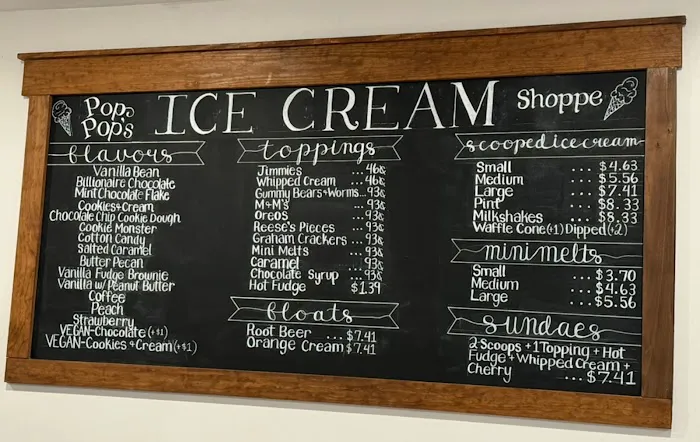 Pop Pop's ICE CREAM Shoppe
flavors
Vanilla Bean
Billionaire Chocolate
Mint Chocolate Flake
Cookies+Cream
Chocolate Chip Cookie Dough
Cookie Monster
Cotton Candy
Salted Caramel
Butter Pecan
Vanilla Fudge Brownie
Vanilla w/ Peanut Butter
Coffee
Peach
Strawberry
VEGAN-Chocolate (+$1)
VEGAN-Cookies + Cream (+$1)
toppings
Jimmies ...46¢
Whipped Cream ...46¢
Gummy Bears+Worms...93¢
M+M's ...93¢
Oreos ...93¢
Reese's Pieces ...93¢
Graham Crackers ...93¢
Mini Melts ...93¢
Caramel ...93¢
Chocolate Syrup ...93¢
Hot Fudge $1.39
floats
Root Beer ...$7.41
Orange Cream $7.41
scooped ice cream
Small ...$4.63
Medium ...$5.56
Large ...$7.41
Pint ...$8.33
Milkshakes ...$8.33
Waffle Cone (+1) Dipped (+2)
mini melts
Small ...$3.70
Medium ...$4.63
Large ...$5.56
sundaes
2 Scoops + 1 Topping + Hot
Fudge + Whipped Cream +
Cherry ...$7.41